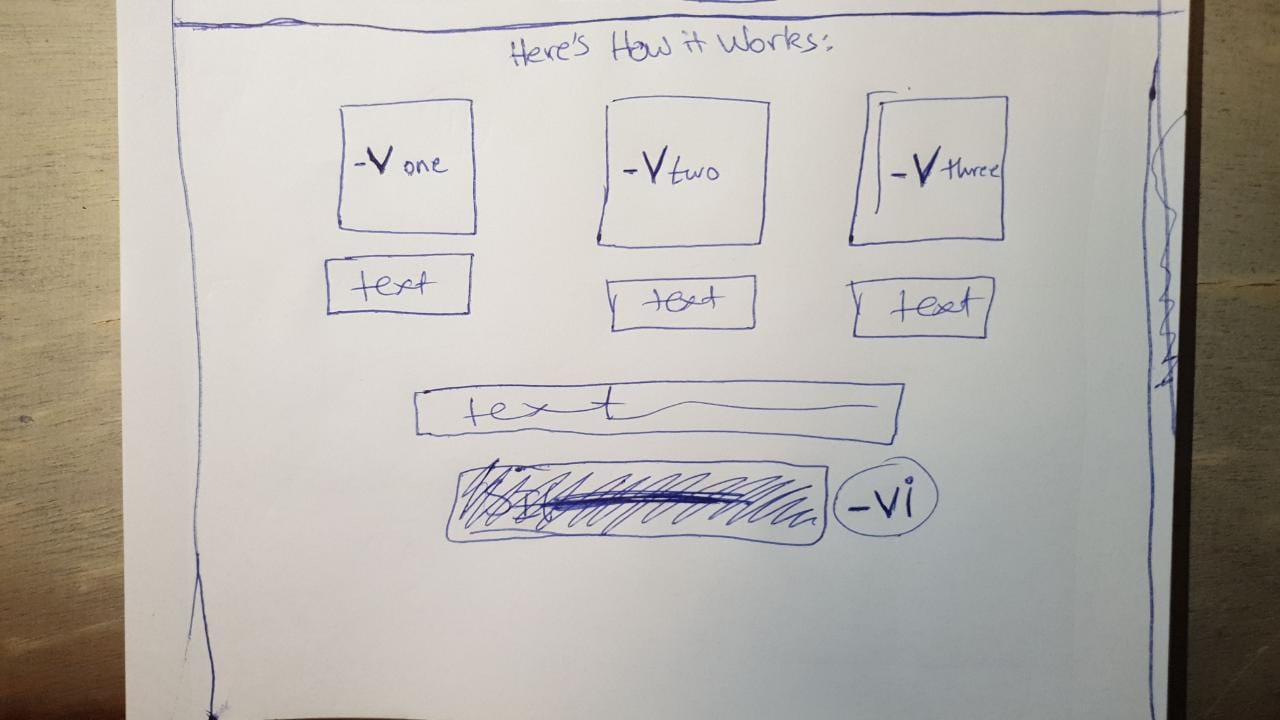 Here's How it Works:
-V one
-V two
-V three
text
text
text
text
-Vi